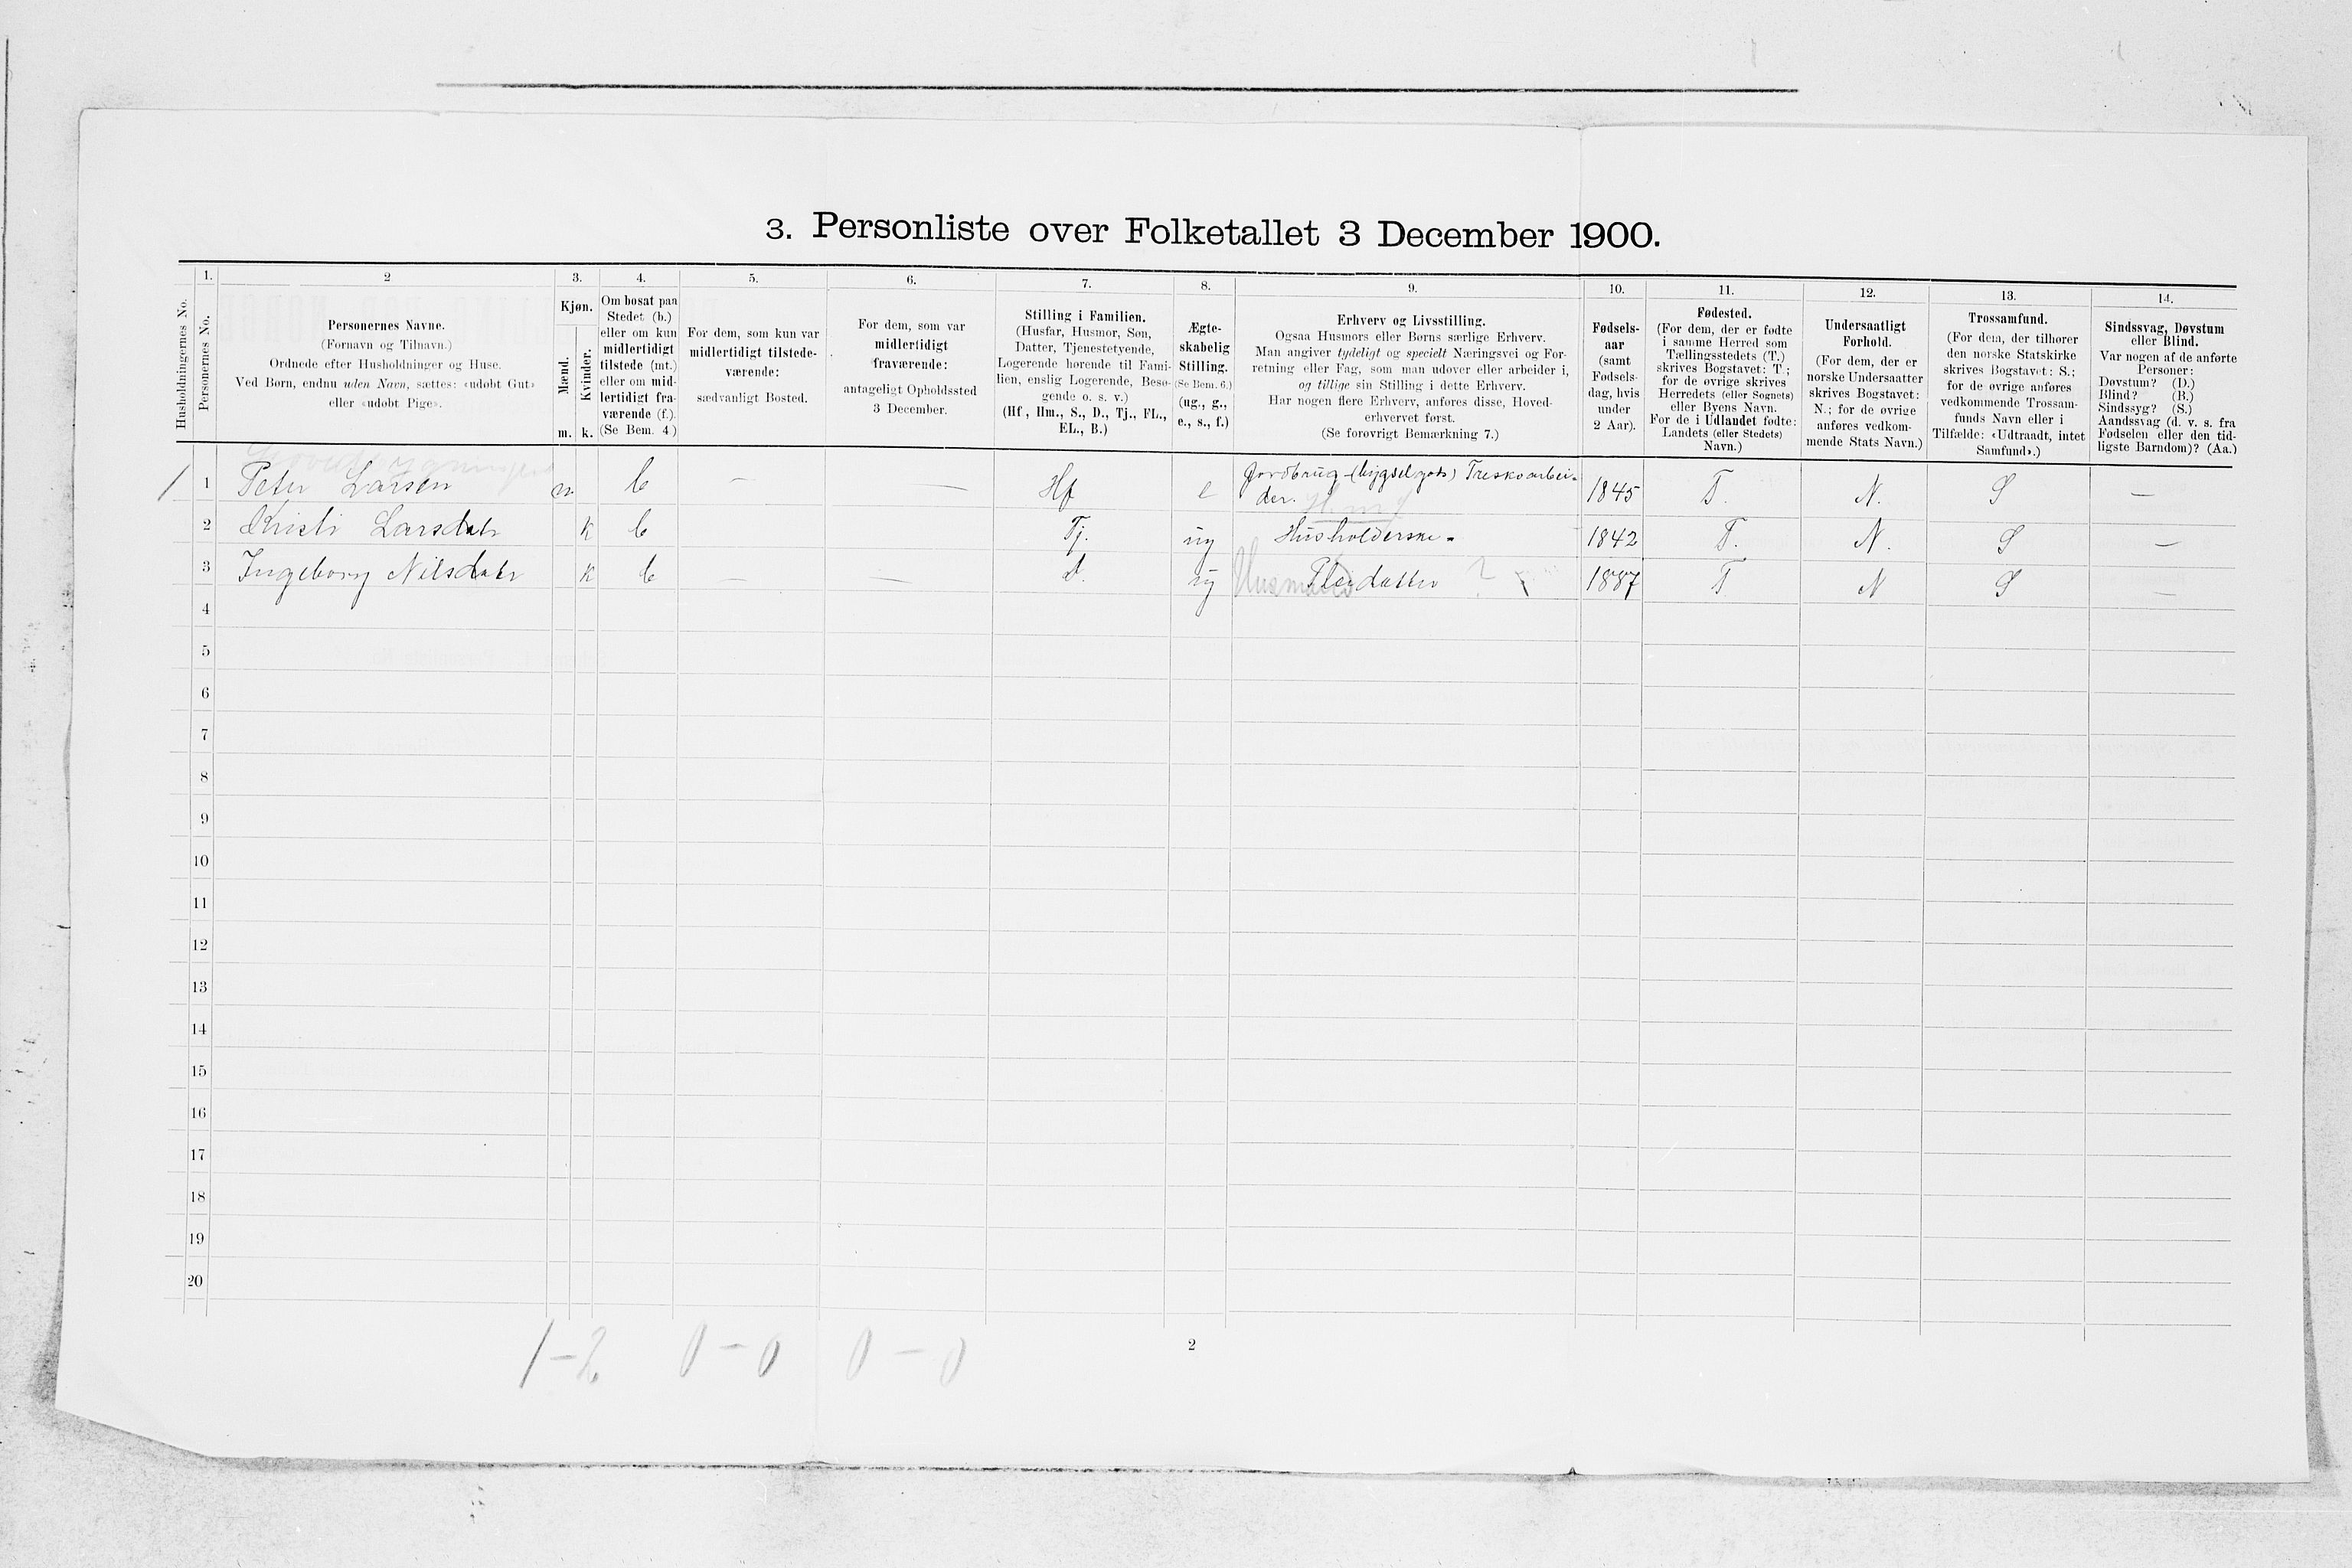 3. Personliste over Folketallet 3 December 1900.
Husholdningernes No.
1.
Personernes No.
2
Personernes Navne.
(Fornavn og Tilnavn.)
Ordnede efter Husholdninger og Huse.
Ved Børn, endnu uden Navn, sættes: «udøbt Gut»
eller «udøbt Pige».
3.
Kjøn.
Mænd.
m.
Kvinder.
k.
4.
Om bosat paa
Stedet (b.)
eller om kun
midlertidigt
tilstede (mt.)
eller om mid-
lertidigt fra-
værende (f.).
(Se Bem. 4.)
5.
For dem, som kun var
midlertidigt tilstede-
værende:
sædvanligt Bosted.
6.
For dem, som var
midlertidigt
fraværende:
antageligt Opholdssted
3 December.
7.
Stilling i Familien.
(Husfar, Husmor, Søn,
Datter, Tjenestetyende,
Logerende hørende til Fami-
lien, enslig Logerende, Besø-
gende o. s. v.)
(Hf., Hm., S., D., Tj., FL.,
EL., B.)
8.
Ægte-
skabelig
Stilling.
(Se Bem. 6.)
(ug., g.,
e., s., f.)
9.
Erhverv og Livsstilling.
Ogsaa Husmors eller Børns særlige Erhverv.
Man angiver tydeligt og specielt Næringsvei og For-
retning eller Fag, som man udøver eller arbeider i,
og tillige sin Stilling i dette Erhverv.
Har nogen flere Erhverv, anføres disse, Hoved-
erhvervet først.
(Se forøvrigt Bemærkning 7.)
10.
Fødsels-
aar
(samt
Fødsels-
dag, hvis
under
2 Aar).
11.
Fødested.
(For dem, der er fødte
i samme Herred som
Tællingsstedets (T.)
skrives Bogstavet: T.;
for de øvrige skrives
Herredets (eller Sognets)
eller Byens Navn.
For de i Udlandet fødte:
Landets (eller Stedets)
Navn.)
12.
Undersaatligt
Forhold.
(For dem, der er
norske Undersaatter
skrives Bogstavet:
N.; for de øvrige
anføres vedkom-
mende Stats Navn.)
13.
Trossamfund.
(For dem, der tilhører
den norske Statskirke
skrives Bogstavet: S.;
for de øvrige anføres
vedkommende Trossam-
funds Navn eller i
Tilfælde: «Udtraadt, intet
Samfund».)
14.
Sindssvag, Døvstum
eller Blind.
Var nogen af de anførte
Personer:
Døvstum? (D.)
Blind? (B.)
Sindssyg? (S.)
Aandssvag (d. v. s. fra
Fødselen eller den tid-
ligste Barndom)? (Aa.)
1 1 Peter Larsen m b — — Hf e Jordbrug (bygselgods) Treskoarbei-
der. 1845 T. N. S —
2 Kristi Larsdatr k b Tj. ug Husholderske 1842 T. N. S —
3 Ingeborg Nilsdatr k b — — d. ug Pleiedatter ? 1887 T N S —
4
5
6
7
8
9
10
11
12
13
14
15
16
17
18
19
20
1-2 0-0 0-0
2